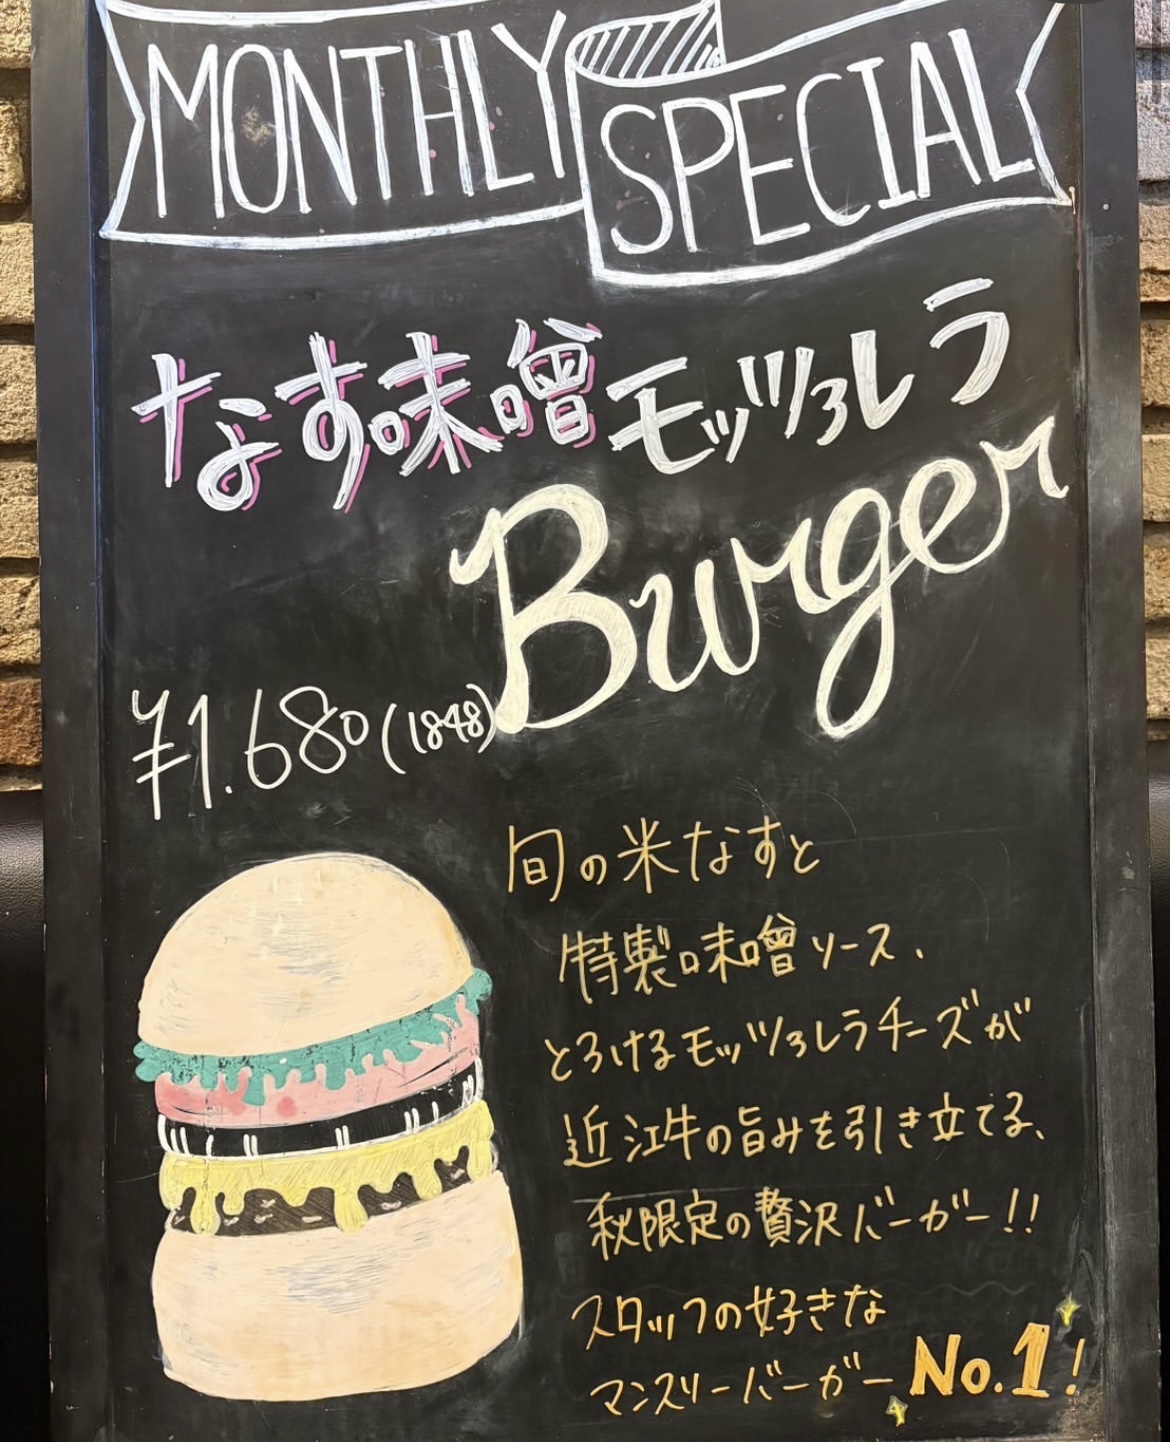 MONTHLY SPECIAL
なす味噌モッツァレラ
Burger
¥1.680(1848)
旬の米なすと
特製味噌ソース、
とろけるモッツァレラチーズが
近江牛の旨みを引き立てる、
秋限定の贅沢バーガー!!
スタッフの好きな
マンスリーバーガーNo.1!